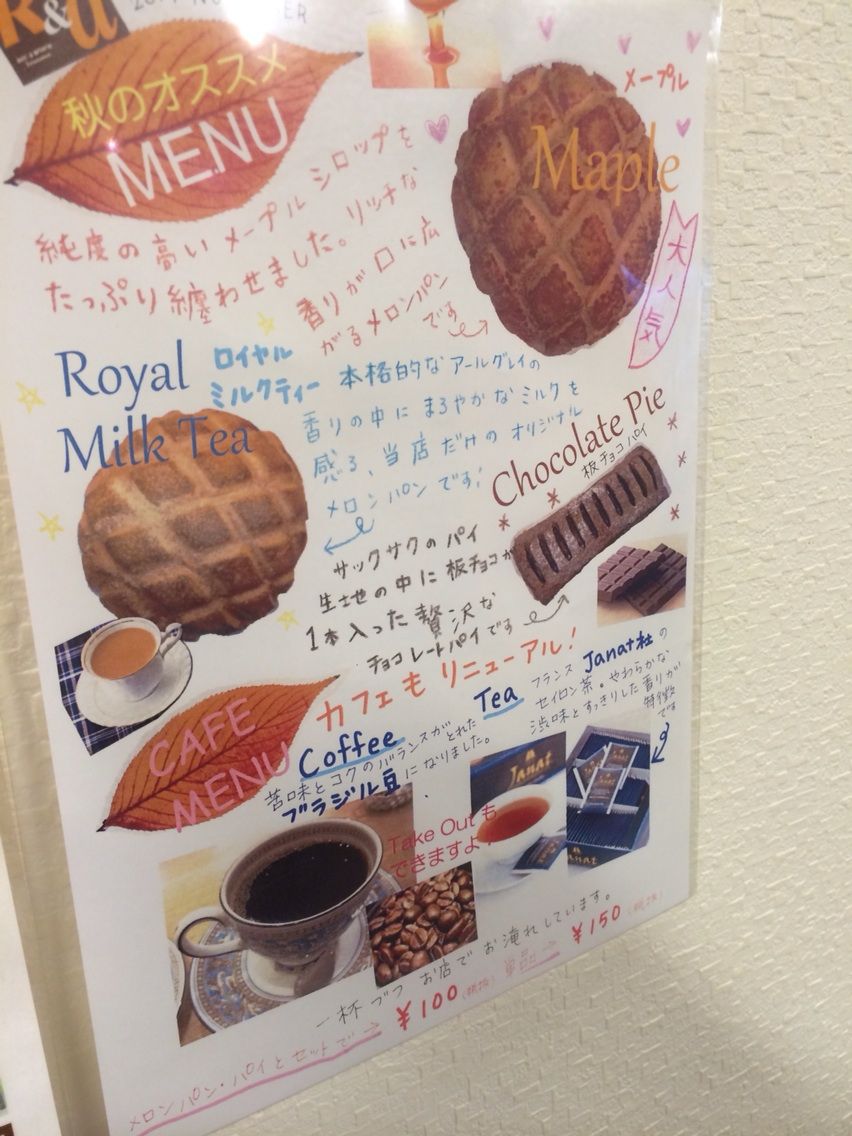 R&a
秋のオススメ
MENU
メープル
Maple
大人気
純度の高いメープルシロップを
たっぷり纏わせました。リッチな
香りが口に広
がるメロンパン
です
Royal
Milk Tea
ロイヤル
ミルクティー
本格的なアールグレイの
香りの中にまろやかなミルクを
感る、当店だけのオリジナル
メロンパンです!
Chocolate Pie
板チョコパイ
サックサクのパイ
生地の中に板チョコが
1本入った贅沢な
チョコレートパイです
カフェもリニューアル!
CAFE
MENU
Coffee
苦味とコクのバランスがとれた
ブラジル豆になりました。
Tea
フランスJanat社の
セイロン茶。やわらかな
渋味とすっきりした香りが
特徴です
Janat
Janat
Take Outも
できますよ!
一杯づつお店でお淹れしています。
メロンパン・パイとセットで→¥100(税抜) 単品→¥150(税抜)